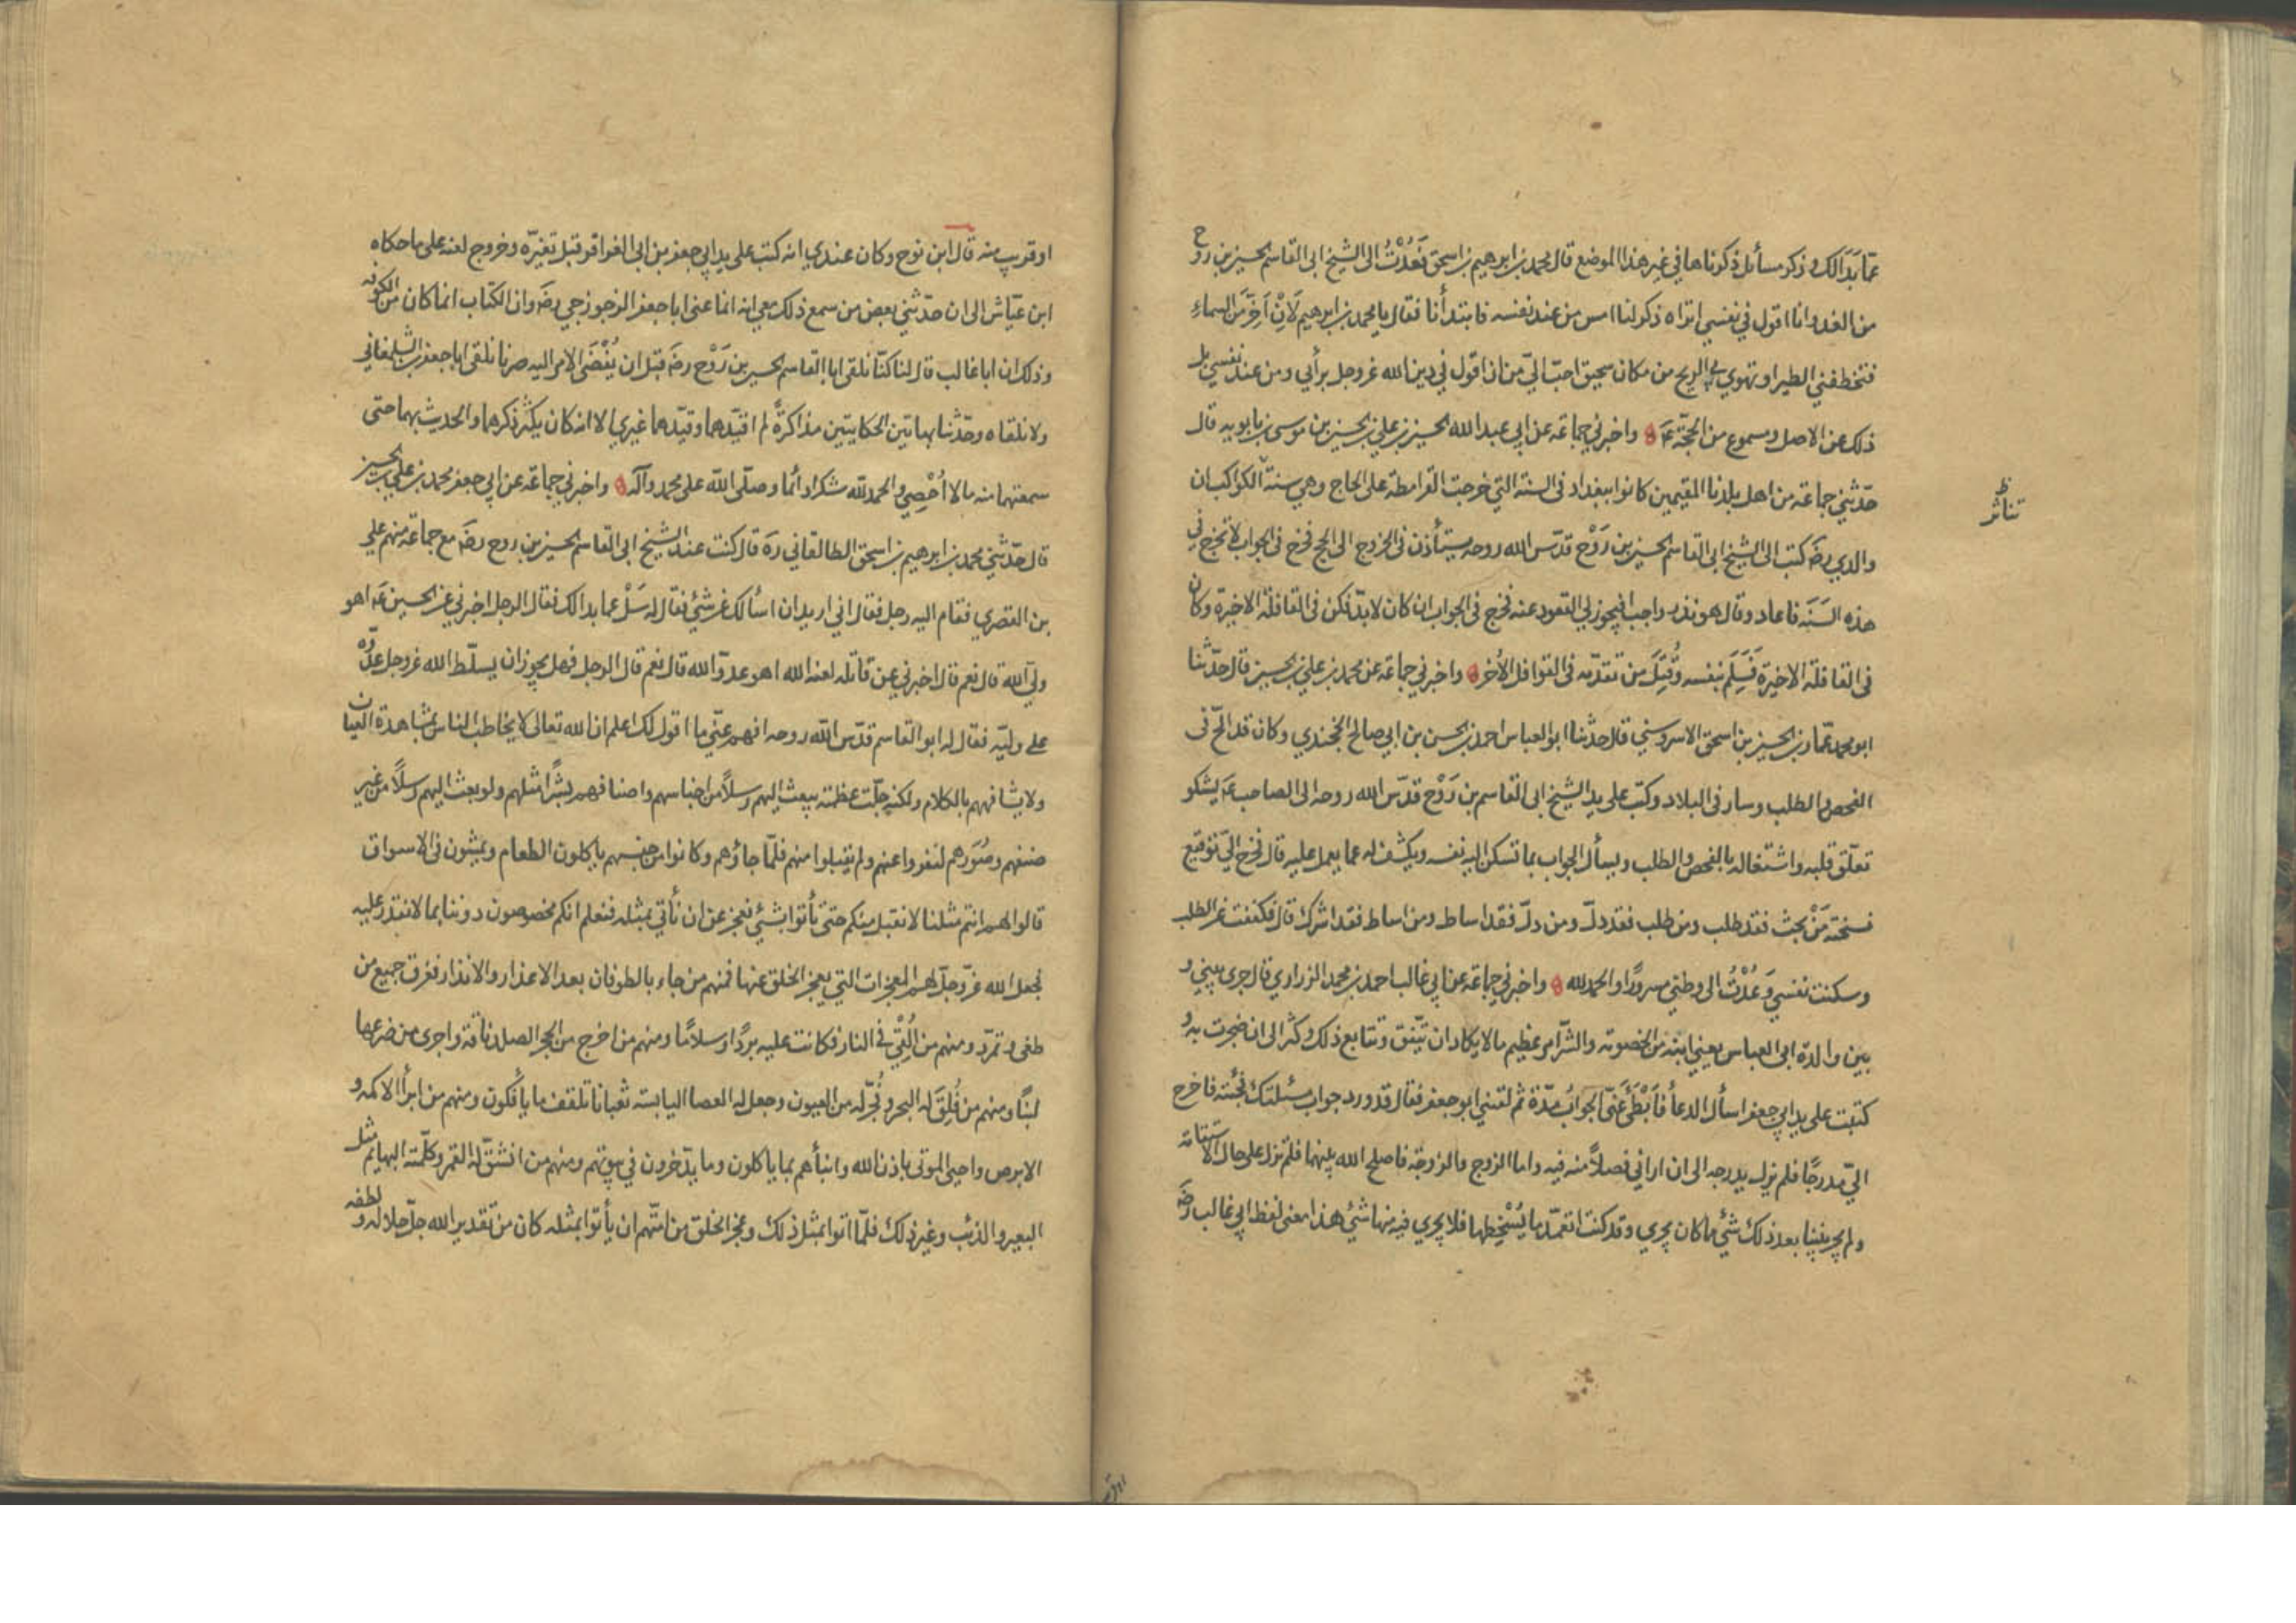 عمّا بَدَالك وذكر مسائل ذكرناها في غير هذا الموضع قال محمد بن ابرهيم بن اسحق فَعُدْتُ الى الشيخ ابى القاسم الحسين بن روح
من الغد وانا اقول في نفسي اتراه ذكر لنا امس من عند نفسه فابتدأنا فقال يا محمد بن ابرهيم لَاَنْ اَخِرَّ من السماء
فتخطفني الطير او تهوي بي الريح من مكان سحيق احبّ اليّ من ان اقول في دين الله عز وجل برأيي ومن عند نفسي بل
ذلك عن الاصل ومسموع من الحجّة عَ واخبرني جماعة عن ابي عبد الله الحسين بن علي بن الحسين بن موسى بن بابويه قال
حدّثني جماعة من اهل بلدنا المقيمين كانوا ببغداد فى السنة التي خرجت القرامطة على الحاج وهي سنة الكواكب ان
ظ
تناثر
والدي رضَ كتب الى الشيخ ابى القاسم الحسين بن رَوْح قدّس الله روحه يستأذن فى الخروج الى الحج فخرج فى الجواب لا تخرج في
هذه السَنَة فاعاد وقال هو نذر واجب افيجوز لي القعود عنه فخرج فى الجواب ان كان لابدّ فكن فى القافلة الاخيرة وكان
فى القافلة الاخيرة فَسَلِمَ بنفسه وقُتِلَ من تقدّمه فى القوافل الأخر واخبرني جماعة عن محمد بن علي بن الحسين قال حدّثنا
ابو محمد عمّار بن الحسين بن اسحق الاسروسني قال حدّثنا ابو العباس احمد بن الحسن بن ابي صالح الخجندي وكان قد الحّ فى
الفحص والطلب وسار فى البلاد وكتب على يد الشيخ ابى القاسم بن رَوْح قدّس الله روحه الى الصاحب عَ يشكو
تعلّق قلبه واشتغاله بالفحص والطلب ويسأل الجواب بما تسكن اليه نفسه ويكشف له عما يعمل عليه قال فخرج اليّ توقيع
نسخته مَنْ بحث فقد طلب ومن طلب فقد دلّ ومن دلّ فقد اساط ومن اساط فقد اشرك قال فكففت عن الطلب
وسكنت نفسي وَعُدْتُ الى وطني مسرورًا والحمد لله واخبرني جماعة عن ابي غالب احمد بن محمد الزراري قال جرى بيني و
بين والدة ابى العباس يعني ابنه من الخصومة والشّر امر عظيم ما لا يكاد ان يتّفق وتتابع ذلك وكثر الى ان ضجرت به و
كتبت على يد ابي جعفر اسأل الدعأ فَاَبْطَئَ عَنّي الجوابُ مدّة ثم لقيني ابو جعفر فقال قد ورد جواب مسئلتك فجئته فاخرج
اليّ مدرجًا فلم يزل يدرجه الى ان اراني فصلاً منه فيه واما الزوج والزوجة فاصلح الله بينهما فلم تزل على حال الاستقامة
ولم يجر بيننا بعد ذلك شئ مما كان يجري وقد كنت اتعمّد ما يُسْخِطها فلا يجري فيه منها شئ هذا معنى لفظ ابي غالب رضَ
او قريب منه قال ابن نوح وكان عندي انه كتب على يد ابي جعفر بن ابى العزاقر قبل تغيّره وخروج لعنه على ما حكاه
ابن عيّاش الى ان حدّثني بعض من سمع ذلك معي انه انما عنى ابا جعفر الزجوزجي رضَ وان الكتاب انما كان من الكوفه
وذلك ان ابا غالب قال لنا كنّا نلقى ابا القاسم الحسين بن رَوْح رضَ قبل ان يُفْضَى الامر اليه صرنا نلقى ابا جعفر الشلمغاني
ولا نلقاه وحدّثنا بهاتين الحكايتين مذاكرةً لم اقيّدهما وقيّدهما غيري الا انه كان يكثر ذكرهما والحديث بهما حتى
سمعتهما منه ما لا اُحْصِي والحمد لله شكرا دائما وصلّى الله على محمد وآله واخبرني جماعة عن ابي جعفر محمد بن علي بن الحسين
قال حدّثني محمد بن ابرهيم بن اسحق الطالقاني رهَ قال كنت عند الشيخ ابى القاسم الحسين بن روح رضَ مع جماعة منهم علي
بن القصري فقام اليه رجل فقال اني اريد ان اسألك عن شئ فقال له سَلْ عما بدالك فقال الرجل اخبرني عن الحسين عَ اهو
وليّ الله قال نعم قال اخبرني عن قاتله لعنه الله اهو عدوّ الله قال نعم قال الرجل فهل يجوز ان يسلّط الله عز وجل عدوّه
على وليّه فقال له ابو القاسم قدّس الله روحه افهم عنّي ما اقول لك اعلم ان الله تعالى لا يخاطب الناس بمشاهدة العيان
ولا يشافههم بالكلام ولكنه جلّت عظمته يبعث اليهم رسلاً من اجناسهم واصنافهم بشرًا مثلهم ولو بعث اليهم رسلاً من غير
صنفهم وصُوَرهم لنفروا عنهم ولم يقبلوا منهم فلمّا جاؤهم وكانوا من جنسهم ياكلون الطعام ويمشون فى الاسواق
قالوا لهم انتم مثلنا لا نقبل منكم حتى تأتوا بشئ نعجز عن ان نأتي بمثله فنعلم انكم مخصوصون دوننا بما لا نقدر عليه
فجعل الله عزّ وجلّ لهم المعجزات التي يعجز الخلق عنها فمنهم من جاء بالطوفان بعد الاعذار والانذار فغرق جميع من
طغى وتمرّد ومنهم من اُلْقِيَ فى النار فكانت عليه بردًا وسلامًا ومنهم من اخرج من الحجر الصلد ناقة واجرى من ضرعها
لبنًا ومنهم من فُلِقَ له البحر وفُجّر له من العيون وجعل له العصا اليابسة ثعبانا تلقف ما يأفكون ومنهم من ابرأ الاكمه و
الابرص واحيى الموتى باذن الله وانبأهم بما ياكلون وما يدّخرون في بيوتهم ومنهم من انشقّ له القمر وكلّمته البهايم مثل
البعير والذئب وغير ذلك فلمّا اتوا بمثل ذلك وعجز الخلق من اممهم ان يأتوا بمثله كان من تقدير الله جلّ جلاله ولطفه